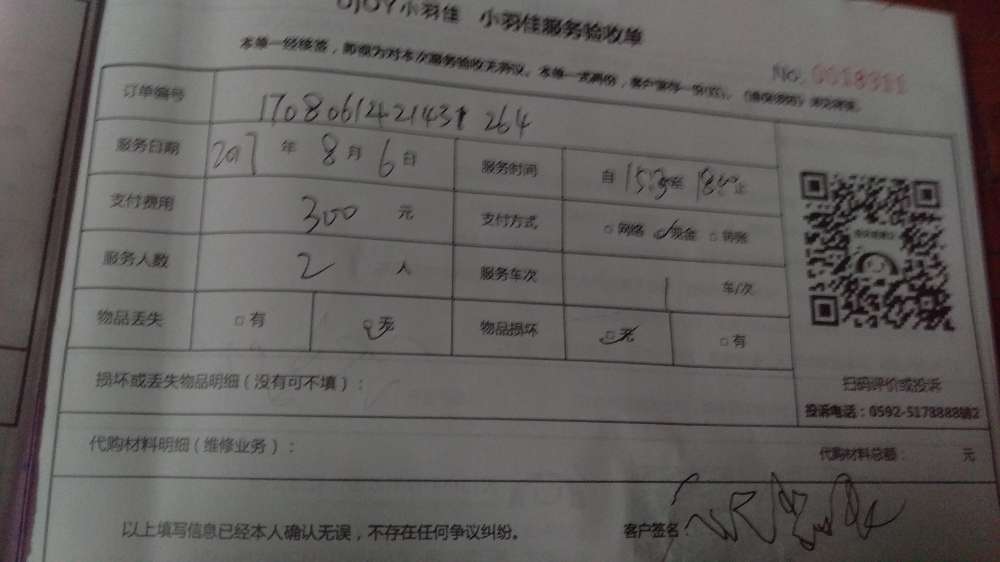 小羽佳 小羽佳服务验收单
本单一经接签，即视为对本次服务验收无异议。本单一式两份，客户保存一份
No. 0018311
订单编号
服务日期 2017 年 8 月 6 日 服务时间 自 至 止
支付费用 300 元 支付方式 □ 网络 □ 现金 □ 销账
服务人数 2 人 服务车次 1 车/次
物品丢失 □ 有 □ 无 物品损坏 □ 无 □ 有
损坏或丢失物品明细（没有可不填）：
扫码评价或投诉
投诉电话：0592-5173888转2
代购材料明细（维修业务）： 代购材料总额： 元
以上填写信息已经本人确认无误，不存在任何争议纠纷。 客户签名：